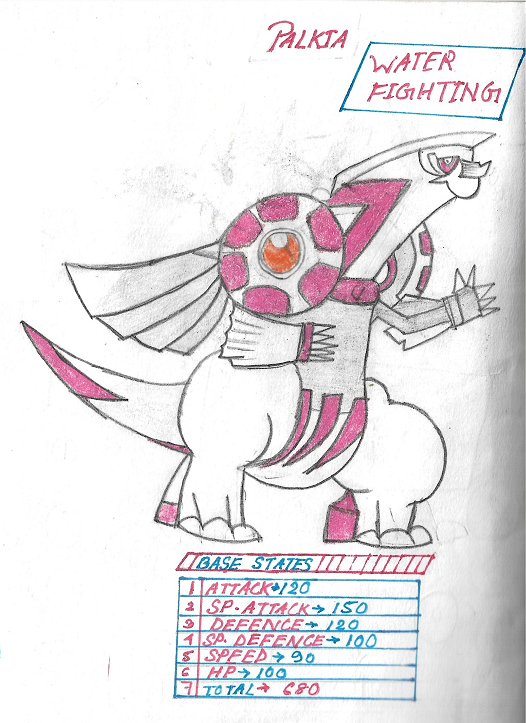 PALKIA
WATER
FIGHTING
BASE STATES
1 ATTACK→120
2 SP.ATTACK→ 150
3 DEFENCE→ 120
4 SP. DEFENCE→ 100
5 SPEED→ 90
6 HP→100
7 TOTAL→ 680